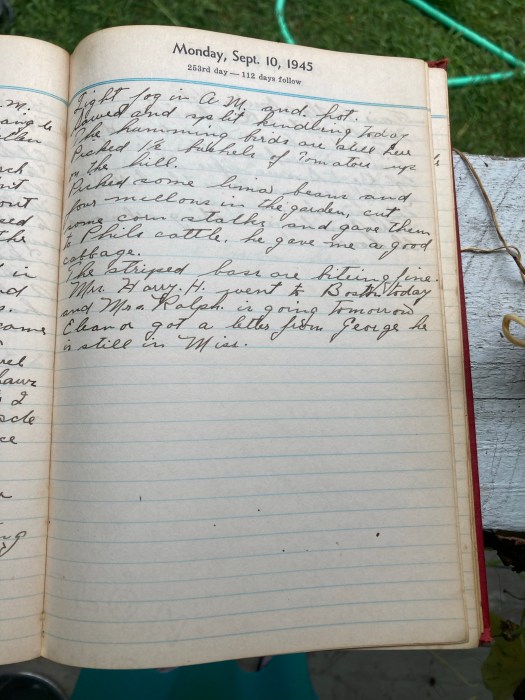 Monday, Sept. 10, 1945
253rd day — 112 days follow
Light fog in A.M. and hot.
Sawed and split kindling today
The humming birds are still here
Picked 1½ bushels of Tomatoes up
on the hill.
Picked some lima beans and
four mellons in the garden, cut
some corn stalks and gave them
to Phils cattle. he gave me a good
cabbage.
The striped bass are biteing fine.
Mrs. Harry. H. went to Bath today
and Ralph is going tomorrow
Eleanor got a letter from George he
is still in Miss.
M.
the
in
came